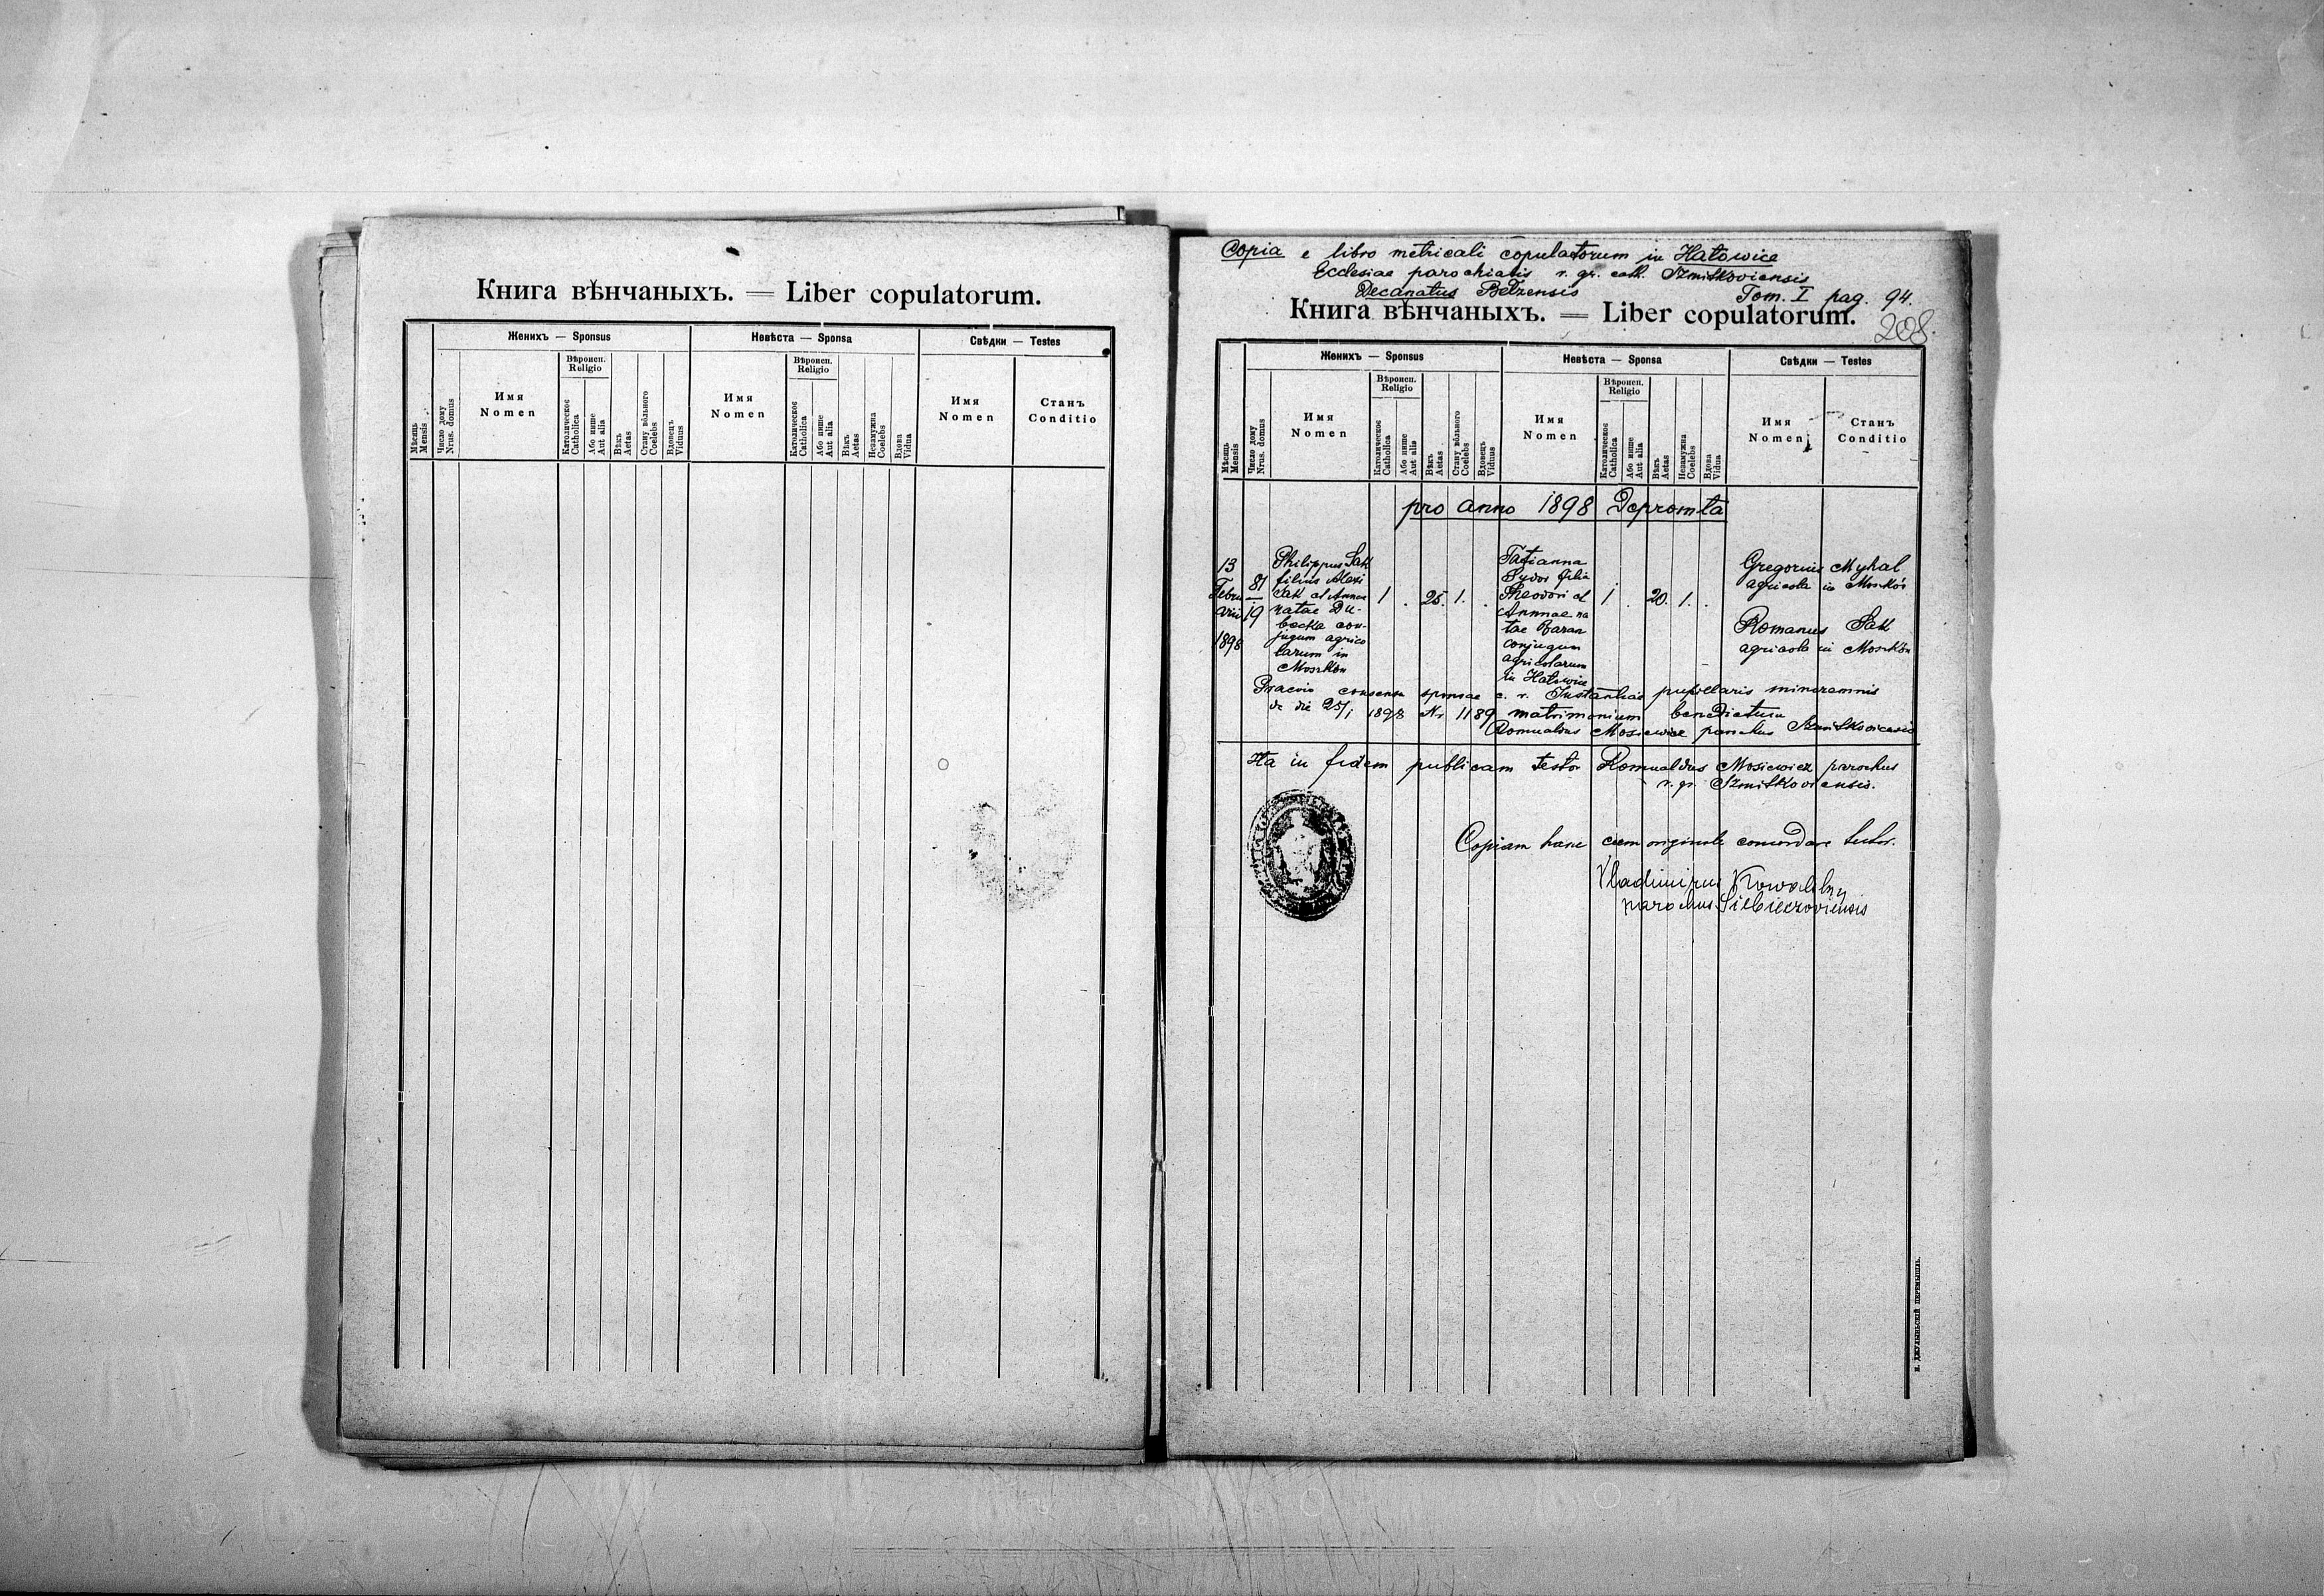 Книга вѣнчаныхъ. = Liber copulatorum.
Женихъ — Sponsus
Невѣста — Sponsa
Свѣдки — Testes
Мѣсяць Mensis
Число дому Nrus. domus
Имя
Nomen
Вѣроисп.
Religio
Католическое Catholica
Або инше Aut alia
Вѣкъ Aetas
Стану вôльного Coelebs
Вдовецъ Viduus
Имя
Nomen
Вѣроисп.
Religio
Католическое Catholica
Або инше Aut alia
Вѣкъ Aetas
Незамужна Coelebs
Вдова Vidua
Имя
Nomen
Станъ
Conditio
Copia e libro metricali copulatorum in Hatowice
Ecclesiae parochialis r. gr. cath. Szmitkoviensis
Decanatus Belzensis Tom. I pag. 94.
Книга вѣнчаныхъ. = Liber copulatorum.
208.
Женихъ — Sponsus
Невѣста — Sponsa
Свѣдки — Testes
Мѣсяць Mensis
Число дому Nrus. domus
Имя
Nomen
Вѣроисп.
Religio
Католическое Catholica
Або инше Aut alia
Вѣкъ Aetas
Стану вôльного Coelebs
Вдовецъ Viduus
Имя
Nomen
Вѣроисп.
Religio
Католическое Catholica
Або инше Aut alia
Вѣкъ Aetas
Незамужна Coelebs
Вдова Vidua
Имя
Nomen
Станъ
Conditio
pro anno 1898 Depromta
13
Febru
arii
1898
81
19
Philippus Sak
filius Alexi
Sak et Annae
natae Du-
becka con-
jugum agrico
larum in
Moszkow
1 . 25. 1. .
Tatianna
Sydor filia
Theodori et
Annae na
tae Baran
conjugum
agricolarum
in Hatowice
1 . 20. 1. .
Gregorius Myhal
agricola in Moszków
Romanus Sak
agricola in Moszków
Praevio consensu sponsae c. r. Instantiae pupillaris minorennis
de die 25/1 1898 Nr 1189 matrimonium benedictum
Romualdus Mosiewicz parochus Szmitkoviensis
Ita in fidem publicam testor Romualdus Mosiewicz parochus
r. gr. Szmitkoviensis.
Copiam hanc cum originale concordare testor.
Vladimirus Kowalskyj
parochus Silbieczoviensis
и. джулыньскій перемышль.